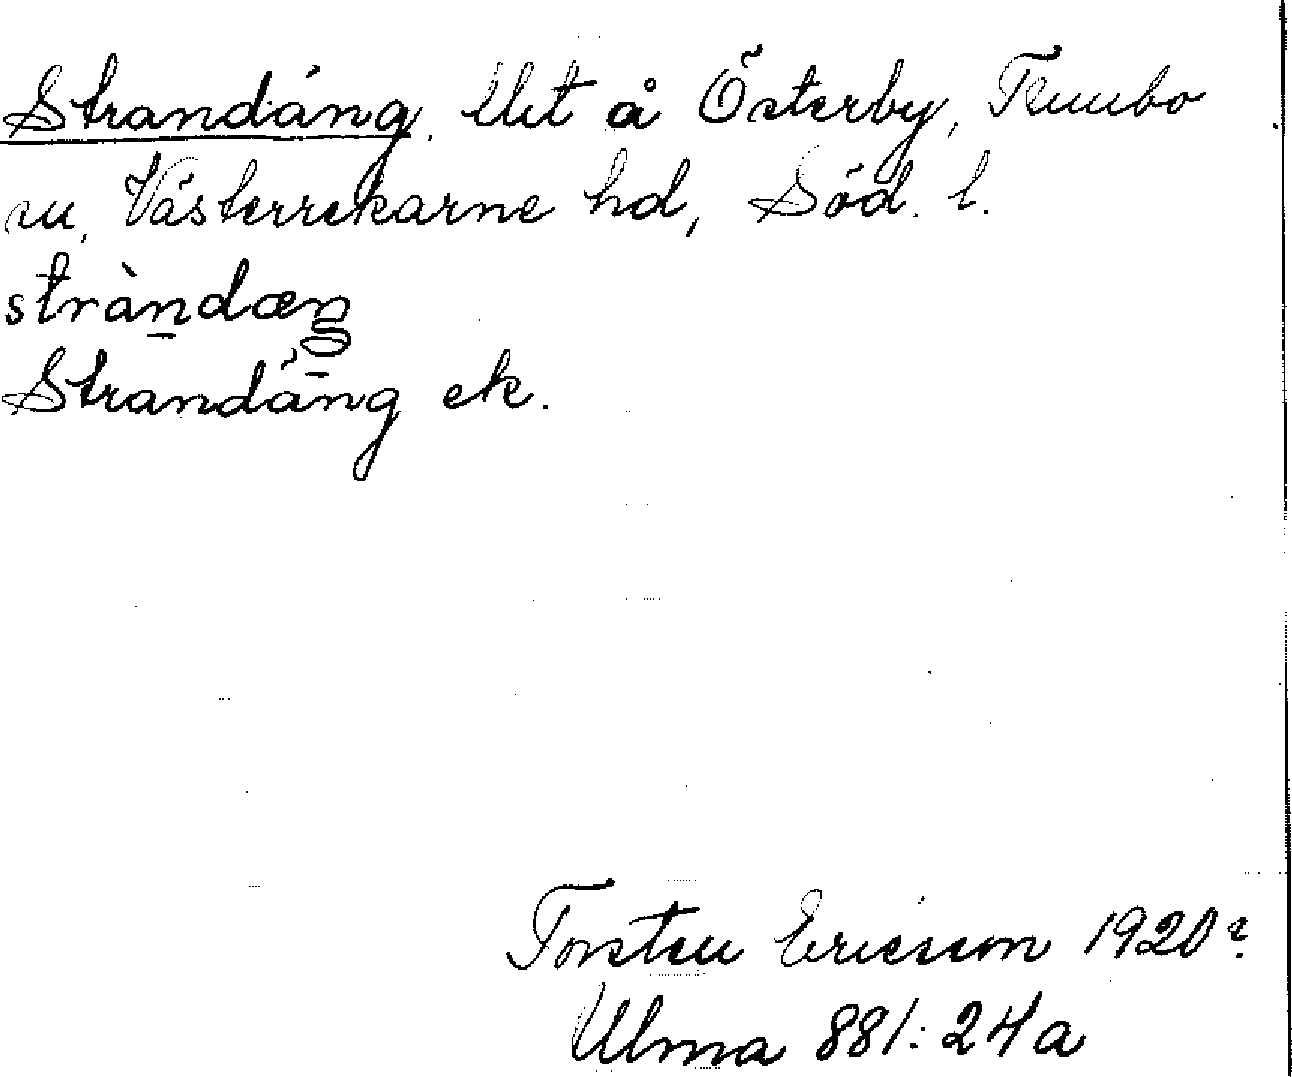 Strandäng. Utt å Österby, Tumbo
sn, Västerrekarne hd, Söd. l.
stràndæŋ
Strandäng ek.
Torsten Ericsson 1920?
Ulma 881:24a